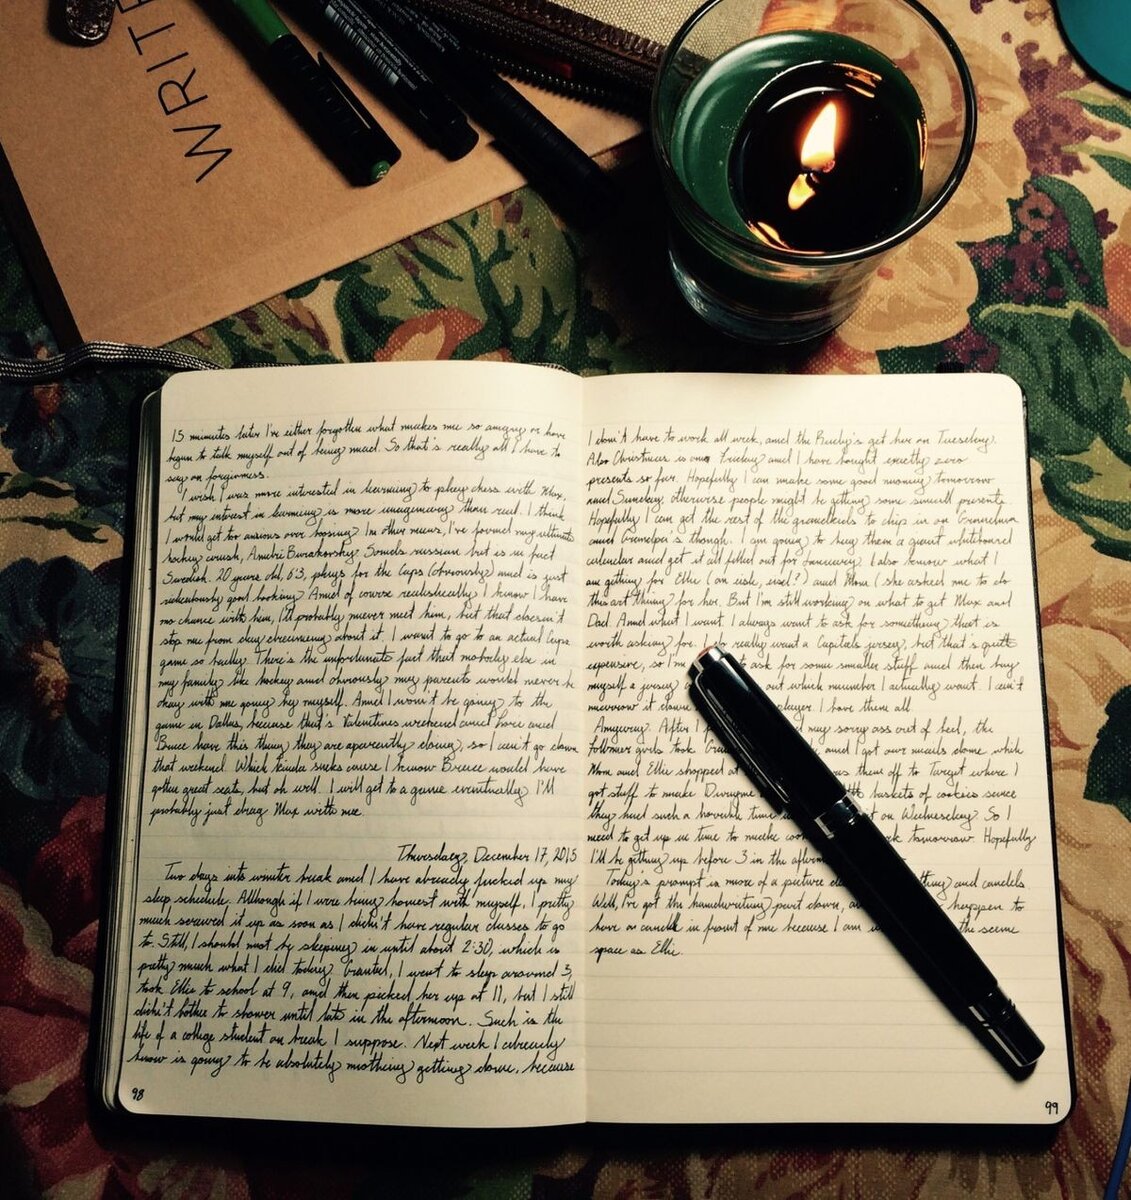 WRITE
15 minutes later I've either forgotten what makes me so angry or have
begun to talk myself out of being mad. So that's really all I have to
say on forgiveness.
I wish I was more interested in learning to play chess with Max,
but my interest in learning is more imaginary than real. I think
I would get too anxious over losing. In other news, I've formed my ultimate
hockey crush, Andre Burakovsky. Sounds russian but is in fact
Swedish. 20 years old, 6'3, plays for the Caps (obviously) and is just
ridiculously good looking. And of course realistically I know I have
no chance with him, I'll probably never meet him, but that doesn't
stop me from day dreaming about it. I want to go to an actual Caps
game so badly. There's the unfortunate fact that nobody else in
my family likes hockey and obviously my parents would never be
okay with me going by myself. And I won't be going to the
game in Dallas, because that's Valentines weekend and and
Bruce have this thing they are apparently doing, so I can't go down
that weekend. Which kinda sucks cause I know Bruce would have
gotten great seats, but oh well. I will get to a game eventually. I'll
probably just drag Max with me.
Thursday, December 17, 2015
Two days into winter break and I have already fucked up my
sleep schedule. Although if I were being honest with myself, I pretty
much screwed it up as soon as I didn't have regular classes to go
to. Still, I should not be sleeping in until about 2:30, which is
pretty much what I did today. Granted, I went to sleep around 3,
took Ellie to school at 9, and then picked her up at 11, but I still
didn't bother to shower until late in the afternoon. Such is the
life of a college student on break I suppose. Next week I already
know is going to be absolutely nothing getting done, because
98
I don't have to work all week, and the get here on Tuesday.
Also Christmas is on Friday and I have bought exactly zero
presents so far. Hopefully I can make some good money tomorrow
and Sunday, otherwise people might be getting some small presents.
Hopefully I can get the rest of the grandkids to chip in on Grandma
and Grandpa's though. I am going to buy them a giant whiteboard
calendar and get it all filled out for January. I also know what I
am getting for Ellie (an and Mom (she asked me to do
this art thing for her. But I'm still working on what to get Max and
Dad. And what I want. I always want to ask for something that is
worth asking for. I do really want a Capitals jersey, but that's quite
expensive, so I'm to ask for some smaller stuff and then buy
myself a jersey out which number I actually want. I can't
narrow it down player. I love them all.
Anyway. After I my sorry ass out of bed, the
girls took and got our nails done while
Mom and Ellie shopped at them off to Target where I
got stuff to make baskets of cookies since
they had such a horrible time on Wednesday. So I
need to get up in time to make tomorrow. Hopefully
I'll be getting up before 3 in the
Today's prompt is more of a picture and candles.
Well, I've got the handwriting part down, happen to
have a candle in front of me because I am the same
space as Ellie.
99